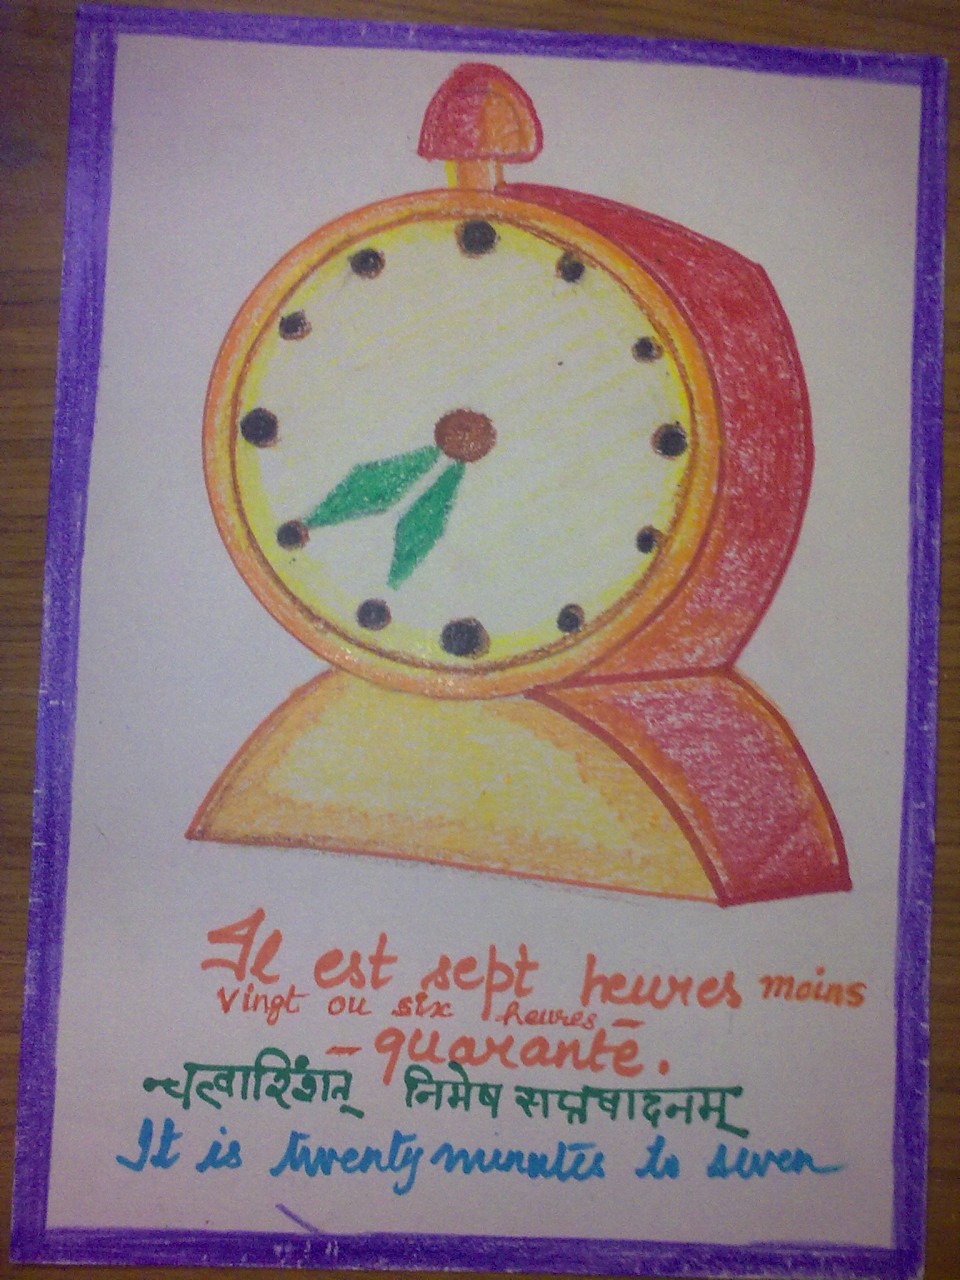 Il est sept heures moins
vingt ou six heures -
- quarante.
चत्वारिंशत् निमेष
It is twenty minutes to seven